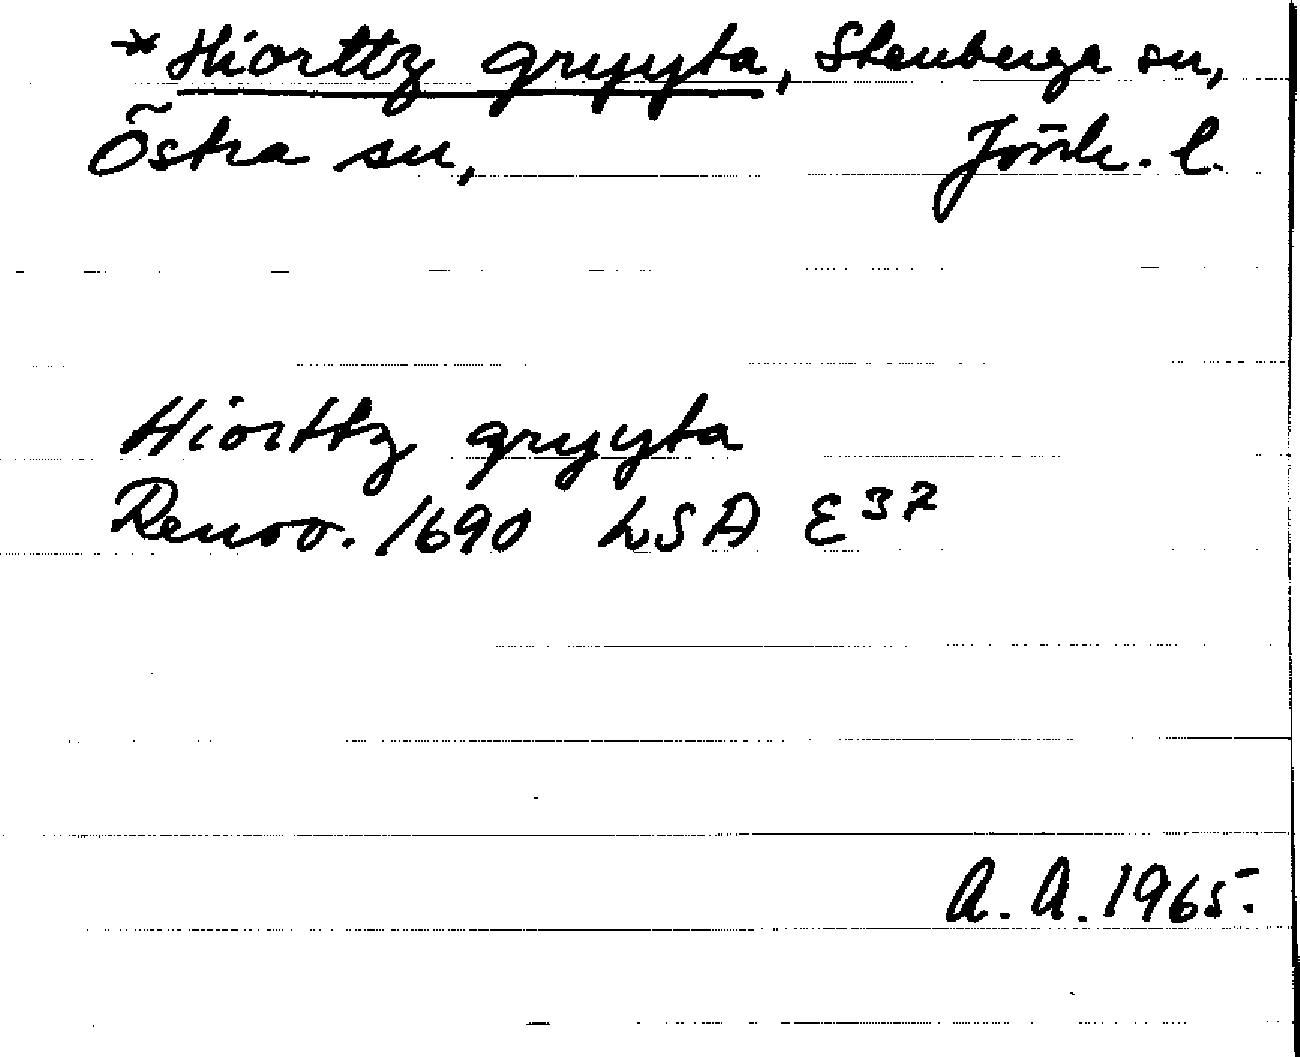 *Hiorttz gryyta, Stenberga sn,
Östra sn, Jönk. l.
Hiorttz gryyta
Renov. 1690 LSA E³⁷
A. A. 1965.